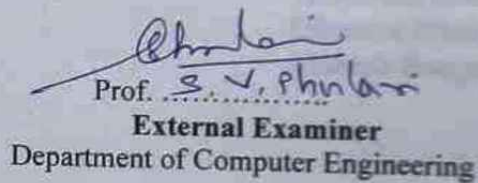 Phulari
Prof. S. V. Phulari
External Examiner
Department of Computer Engineering